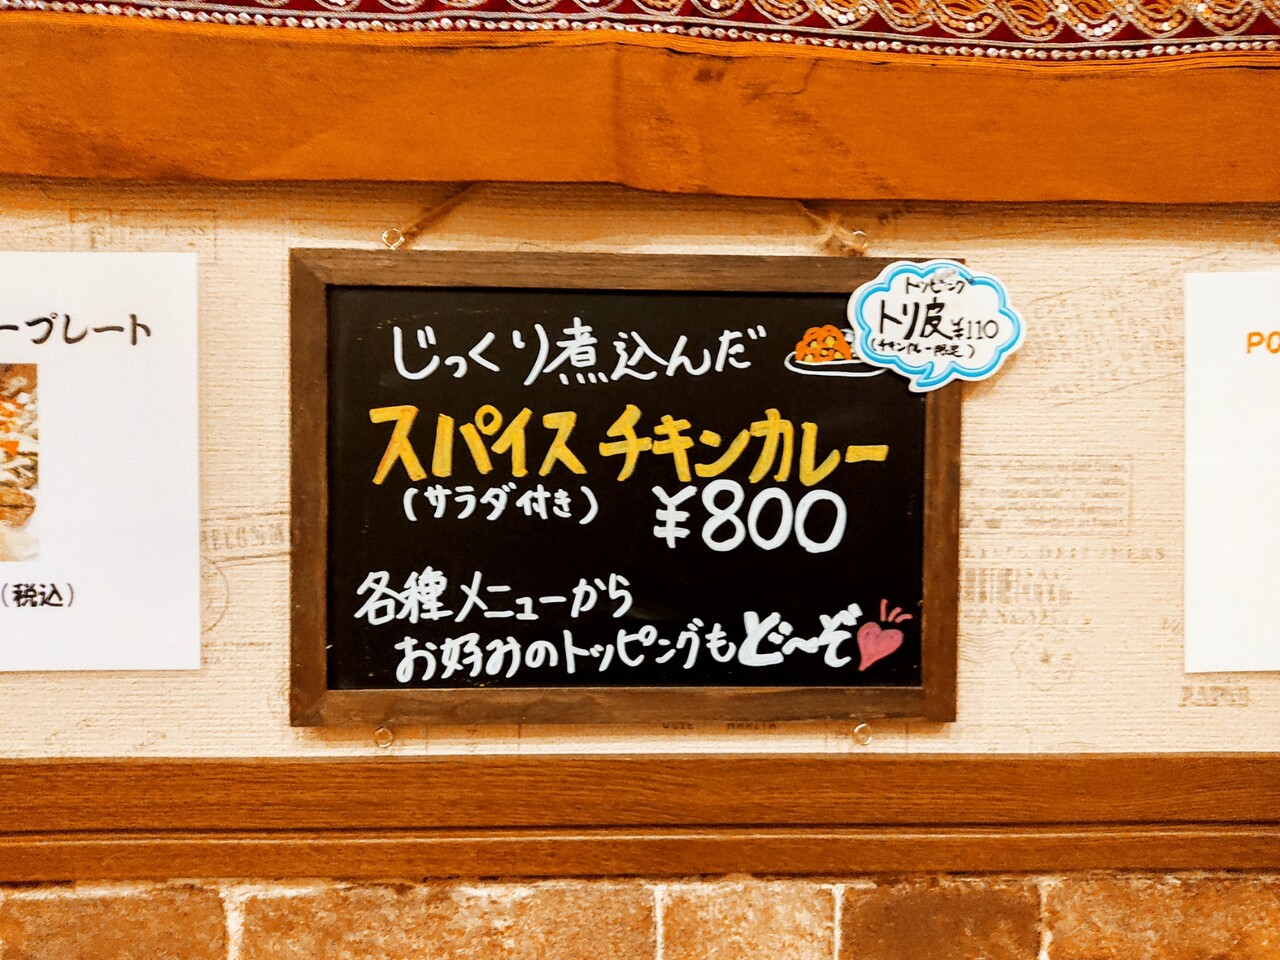 ープレート
(税込)
じっくり煮込んだ
スパイスチキンカレー
(サラダ付き) ¥800
各種メニューから
お好みのトッピングもど〜ぞ
トッピング
トリ皮¥110
(チキンカレー限定)
PO